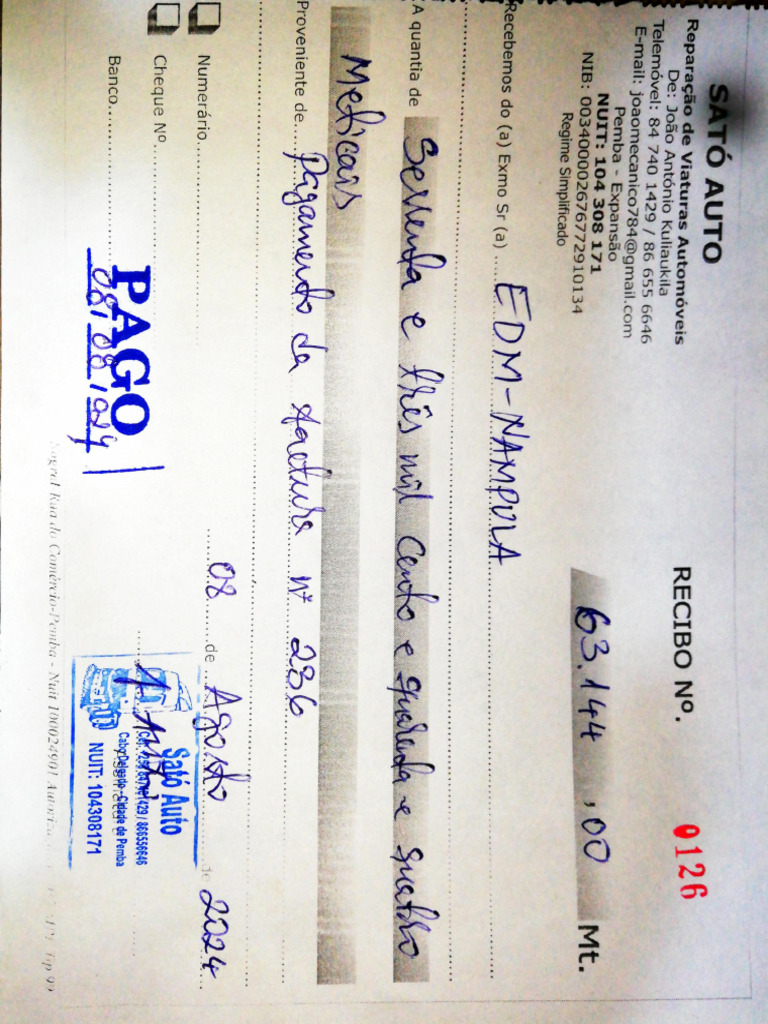 SATÓ AUTO
Reparação de Viaturas Automóveis
De: João António Kuliaukila
Telemóvel: 84 740 1429 / 86 655 6646
E-mail: joaomecanico784@gmail.com
Pemba - Expansão
NUIT: 104 308 171
NIB: 003400002676772910134
Regime Simplificado
RECIBO Nº. 0126
63.144,00 Mt.
Recebemos do (a) Exmo Sr (a) EDM-NAMPULA
A quantia de Sessenta e três mil cento e quarenta e quatro
Meticais
Proveniente de Pagamento da factura nº 286
Numerário
Cheque Nº
Banco
08 de Agosto de 2024
PAGO
08/08/2024
Sató Auto
Cabo Delgado - Cidade de Pemba
NUIT: 104308171
Rua do Comércio-Pemba - Nuit 100024901